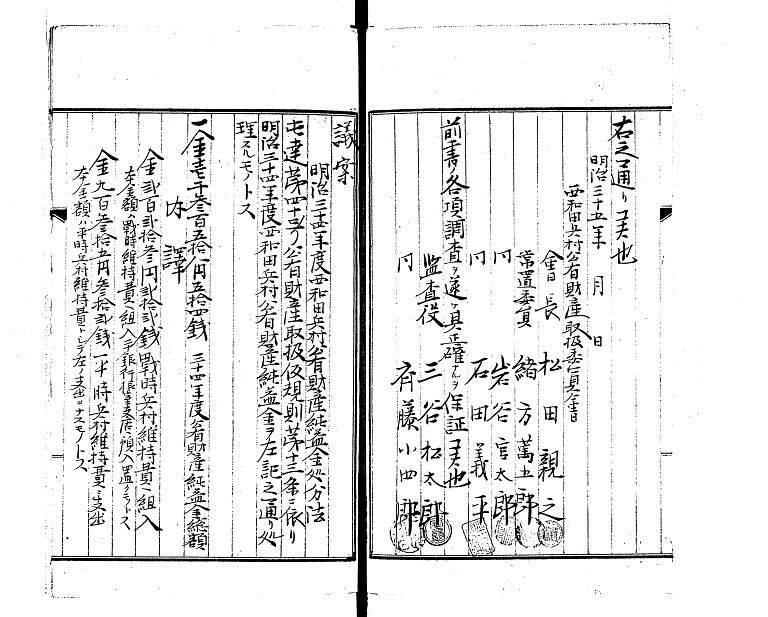 右之通リ候也
明治三十五年 月 日
西和田兵村公有財産取扱委員會
會長 松田親之
常置委員 緒方萬五郎
仝 岩谷官太郎
仝 石田義平
前書ノ各項調査ヲ遂ケ真正確ナルヲ保証候也
監査役 三谷松太郎
仝 斉藤小四郎
議案
明治三十四年度西和田兵村公有財産純益金処分法
屯達第四十号公有財産取扱仮規則第十三条ニ依リ
明治三十四年度西和田兵村公有財産純益金ヲ左記之通リ処
理スルモノトス
一金壱千参百五拾八円五拾四銭 三十四年度公有財産純益金総額
内譯
金弐百弐拾参円弐拾弐銭 戦時兵村維持費ニ組入
本金額ハ戦時維持費ニ組入
金九百参拾五円参拾弐銭 平時兵村維持費ニ支出
本金額ハ平時兵村維持費トシテ左ノ支出ヲナスモノトス